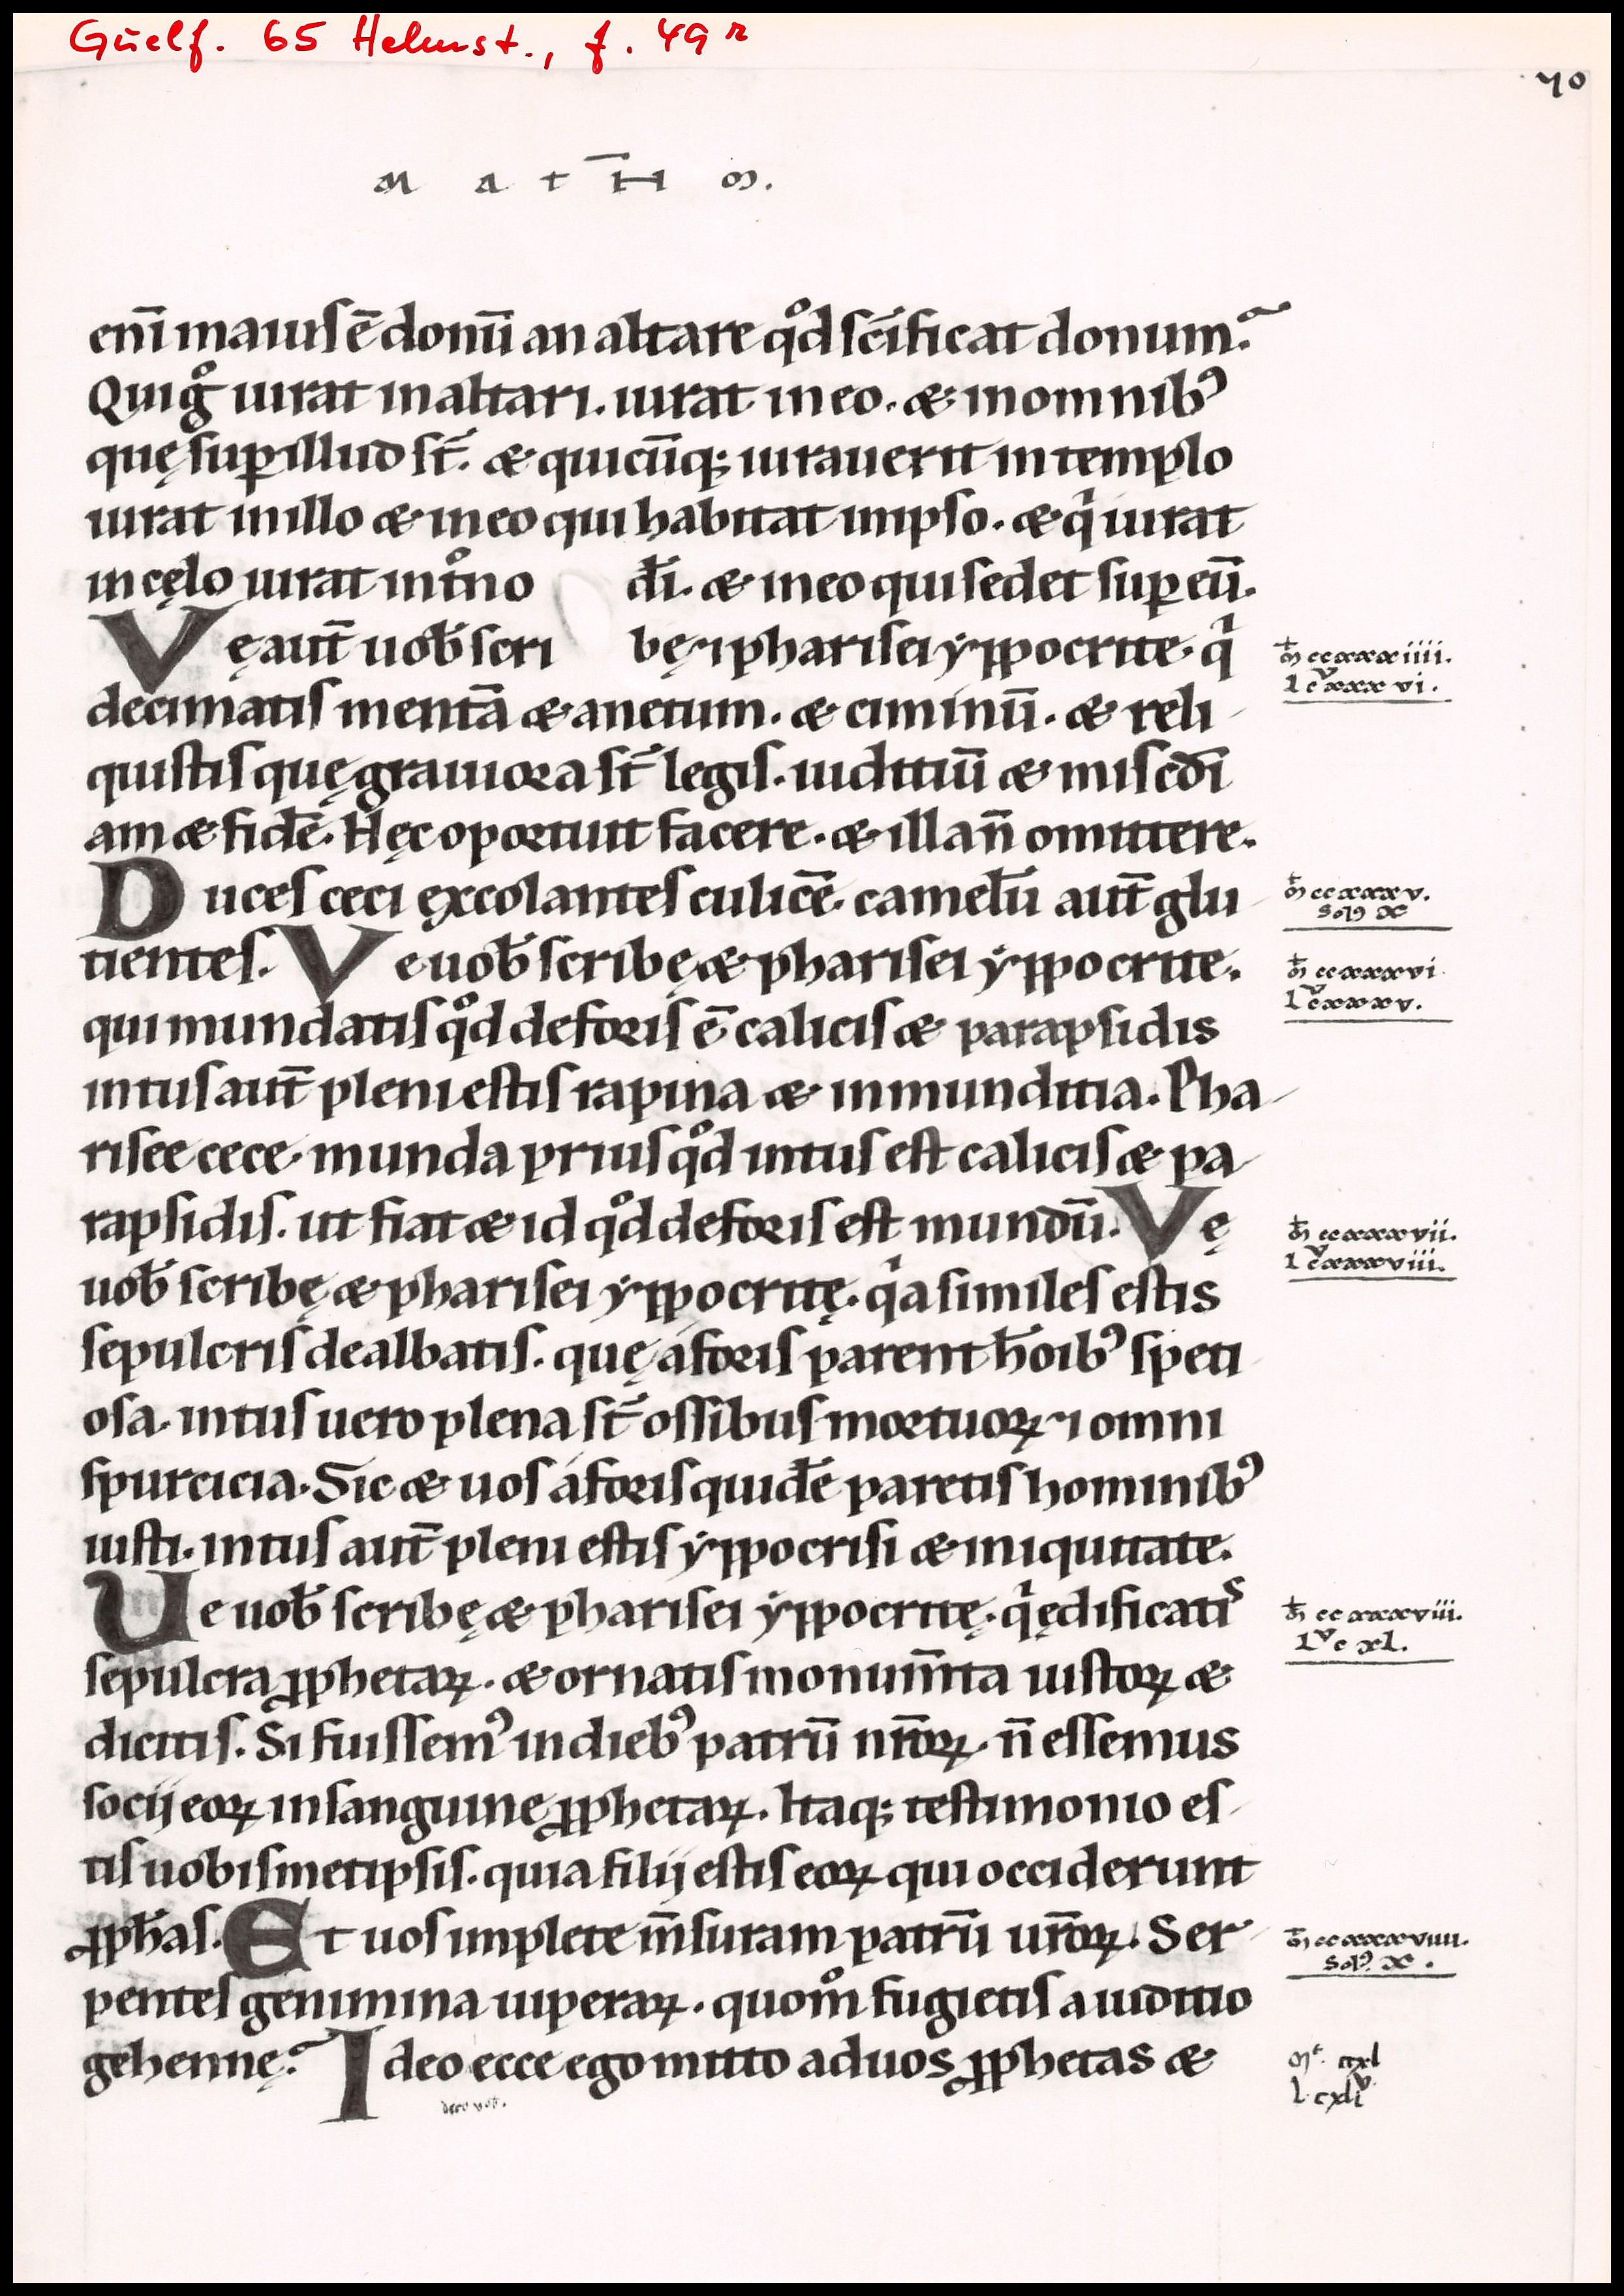 Guelf. 65 Helmst., f. 49r
40
M A T H̅ M.
eni̅ maius e̅ donu̅ an altare qͦd sc̅ificat donum?
Qui gͦ iurat in altari. iurat in eo. & in omnibꝰ
quę suꝑ illud st̅. & quicu̅q; iurauerit in templo
iurat in illo & in eo qui habitat in ipso. & qͥ iurat
in cęlo iurat in tͦno di̅. & in eo qui sedet suꝑ eu̅.
Vę aut̅ uob̅ scribę ⁊ pharisei yppocrite. qͥ
decimatis menta̅ & anetum. & ciminu̅. & reli
quistis quę grauiora st̅ legis. iuditiu̅ & misc̅di
am & fide̅. Hęc oportuit facere. & illa n̅ omittere.
Duces ceci ęxcolantes culice̅. camelu̅ aut̅ glu
tientes. Ve uob̅ scribę & pharisei yppocrite.
qui mundatis qͦd deforis e̅ calicis & parapsidis
intus aut̅ pleni estis rapina & inmunditia. Pha
risee cece. munda prius qͦd intus est calicis & pa
rapsidis. ut fiat & id qͦd deforis est mundu̅. Vę
uob̅ scribę & pharisei yppocritę. qͥa similes estis
sepulcris dealbatis. quę aforis parent ho̅ibꝰ speti
osa. intus uero plena st̅ ossibus mortuoꝝ ⁊ omni
spurcicia. Sic & uos aforis quide̅ paretis hominibꝰ
iusti. intus aut̅ pleni estis yppocrisi & iniquitate.
Ue uob̅ scribę & pharisei yppocritę. qͥ ędificatis
sepulcra ꝓphetaꝝ. & ornatis monum̅ta iustoꝝ &
dicitis. Si fuissemꝰ in diebꝰ patru̅ nr̅oꝝ. n̅ essemus
socij eoꝝ in sanguine ꝓphetaꝝ. Itaq; testimonio es
tis uobismetipsis. quia filij estis eoꝝ qui occiderunt
ꝓph̅as. Et uos implete m̅suram patru̅ ur̅oꝝ. Ser
pentes genimina uiperaꝝ. quom̊ fugietis a iuditio
gehennę? Ideo ecce ego mitto ad uos ꝓphetas &
m̅ ccxxxiiii.
l cͮxxxvi.
m̅ ccxxxv.
solꝰ x
m̅ ccxxxvi
l cͮxxxv.
m̅ ccxxxvii.
l cͮxxxviii.
m̅ ccxxxviii.
lͮ c xl.
m̅ ccxxxviiii.
solꝰ x.
mͭ ccxl
l. cxliͮ